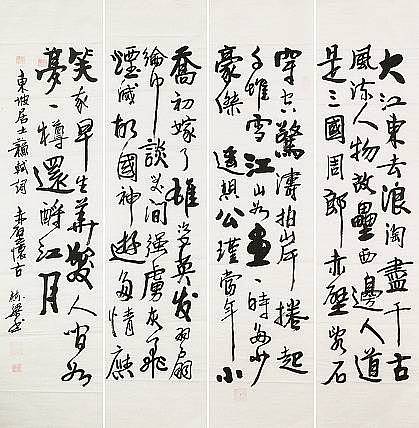 大江東去浪淘盡千古
風流人物故壘西邊人道
是三國周郎赤壁乱石
穿空驚濤拍岸捲起
千堆雪江山如畫一時多少
豪傑遥想公瑾當年小
喬初嫁了雄姿英发羽扇
綸巾談笑间强虜灰飛
煙滅故國神遊多情應
笑我早生華髮人间如
夢一樽還酹江月
東坡居士蘇軾詞赤壁懷古